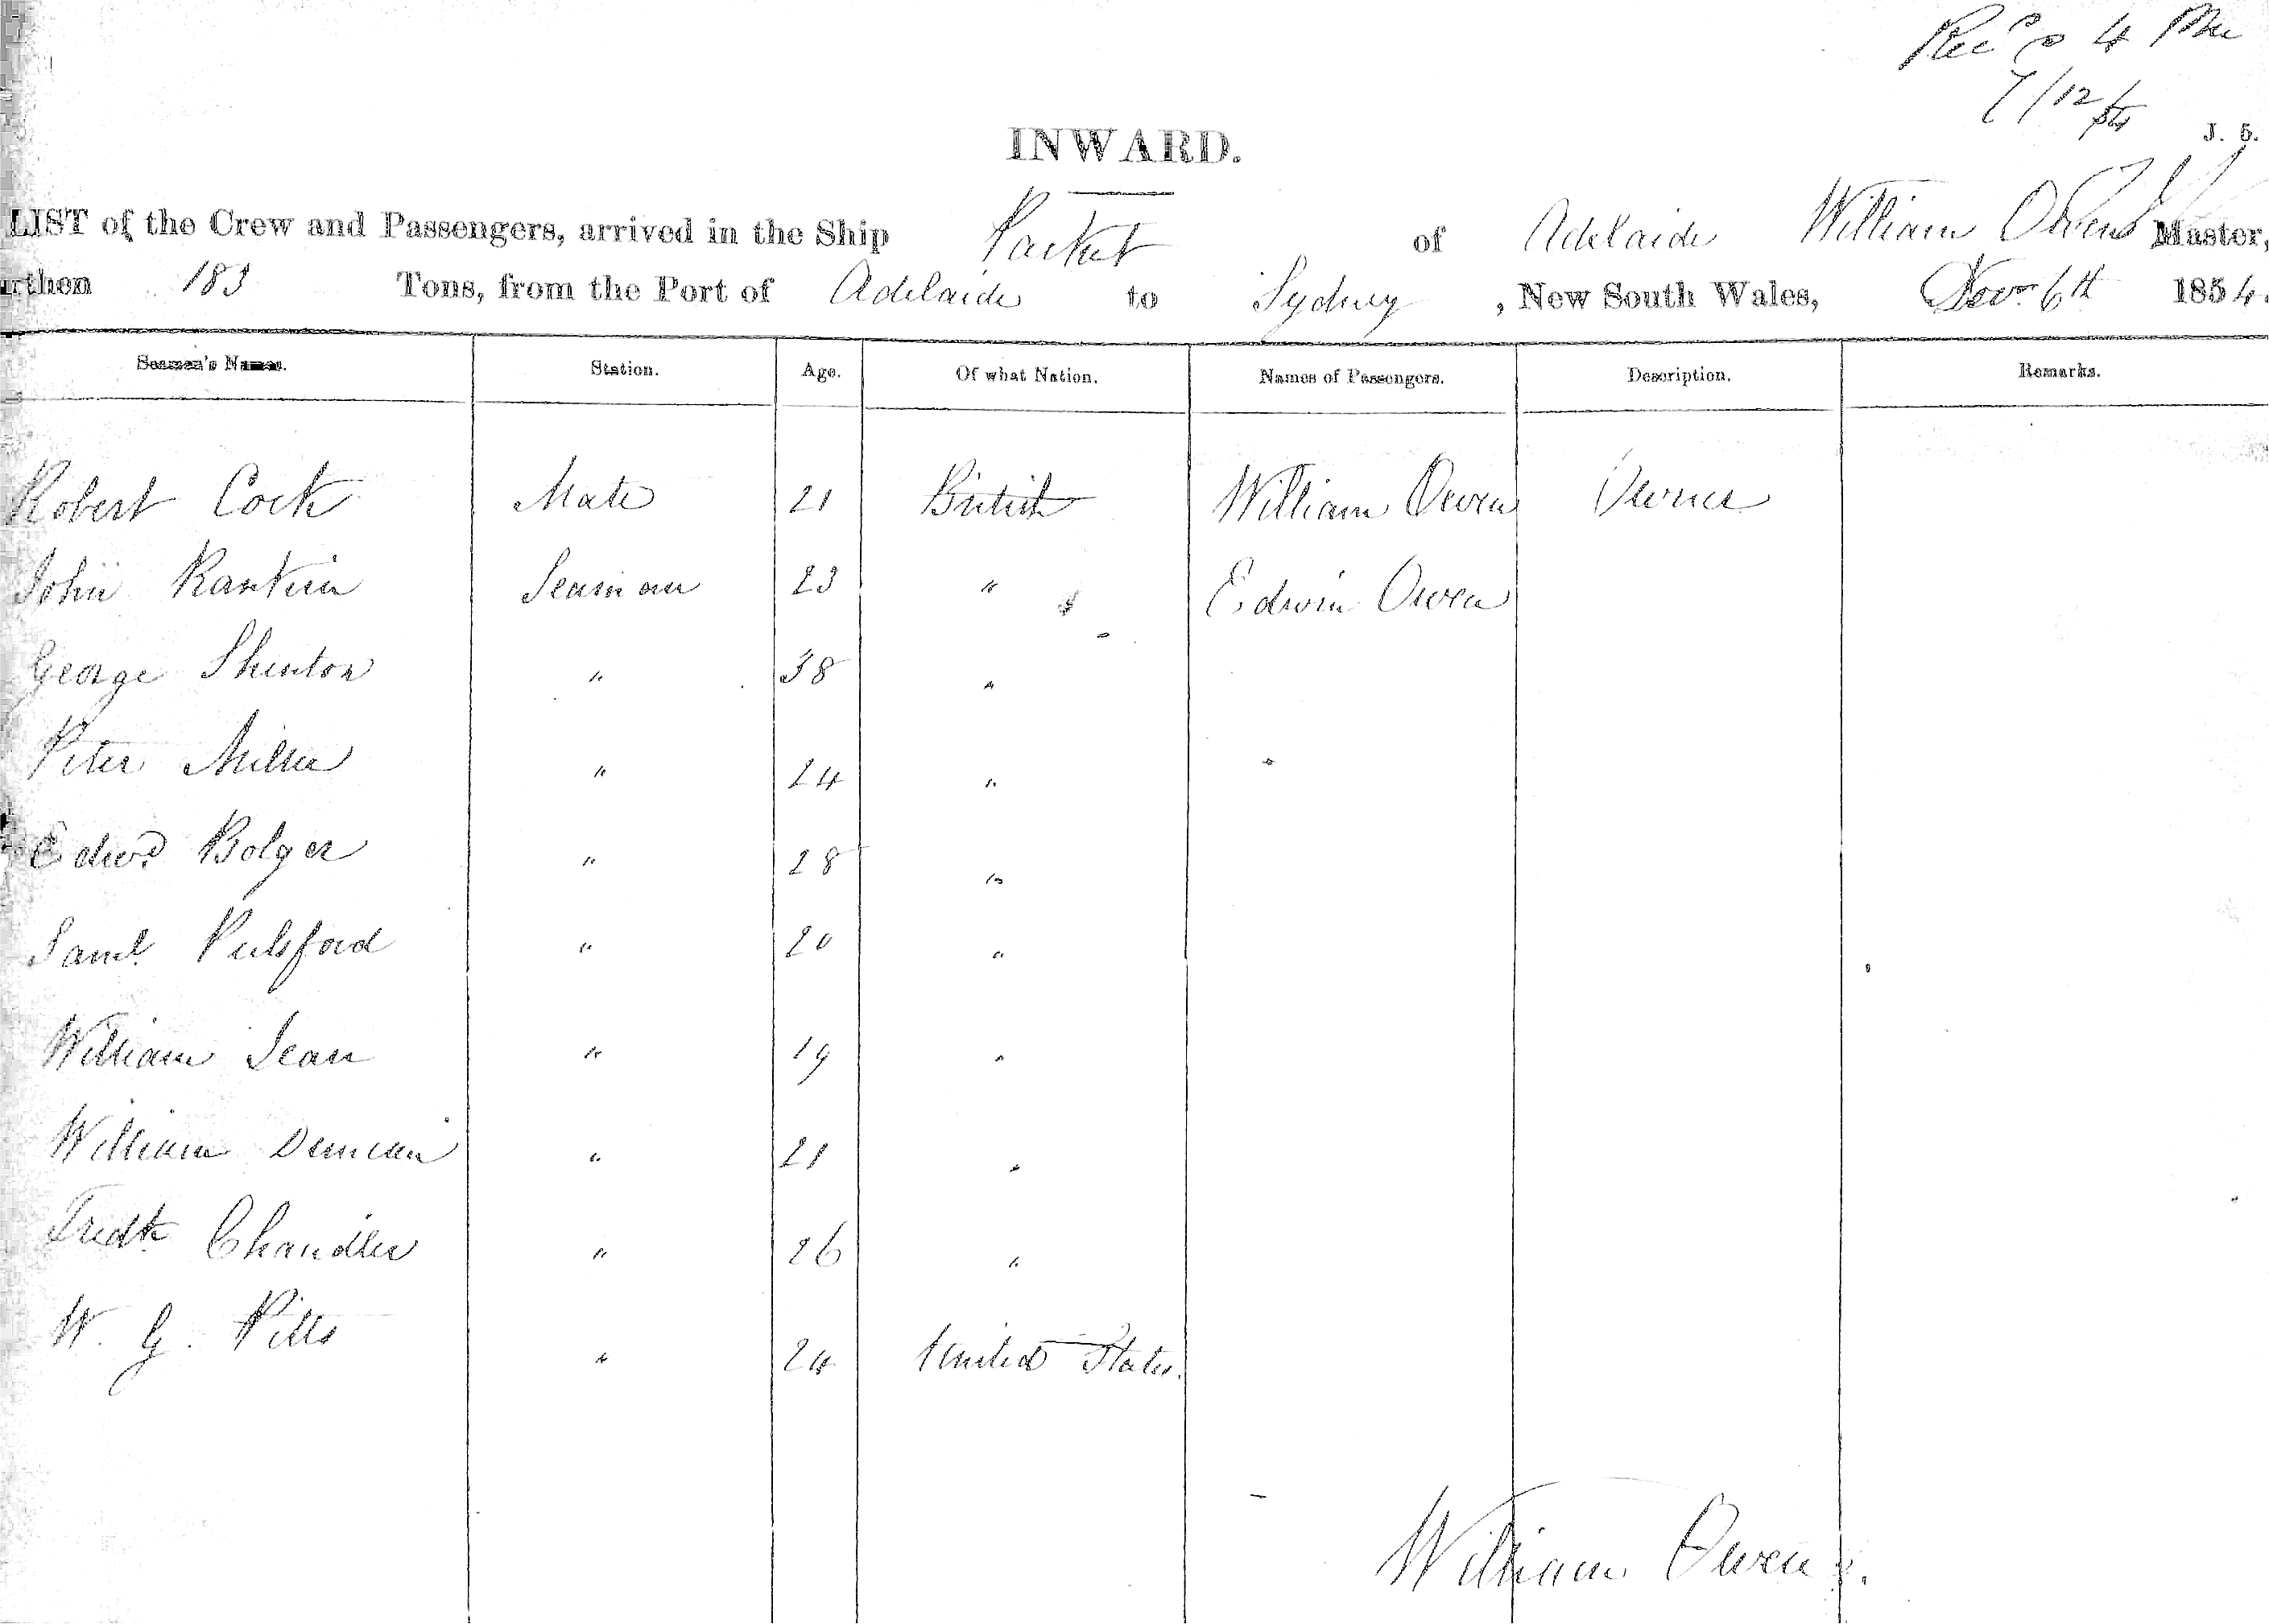 Recd @ 4 Pm
7/12/54
J. 5.
INWARD.
LIST of the Crew and Passengers, arrived in the Ship Packet of Adelaide William Owen Master,
rthen 183 Tons, from the Port of Adelaide to Sydney , New South Wales, Novr 6th 1854.
Seamen's Names. Station. Age. Of what Nation. Names of Passengers. Description. Remarks.
Robert Cock Mate 21 British William Owen Owner
John Rankin Seaman 23 " Edwin Owen
George Shinton " 38 "
Peter Miller " 24 "
Edwd Bolger " 28 "
Saml. Pulsford " 20 "
William Jean " 19 "
William Duncan " 21 "
Fredk Chandler " 26 "
W. G. Pitts " 24 United States.
William Owen